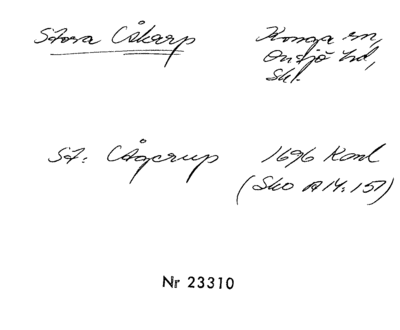 Stora Åkarp Konga sn,
Onsjö hd,
Skl.
St. Ågerup 1696 Kard
(Sko A 14:157)
Nr 23310